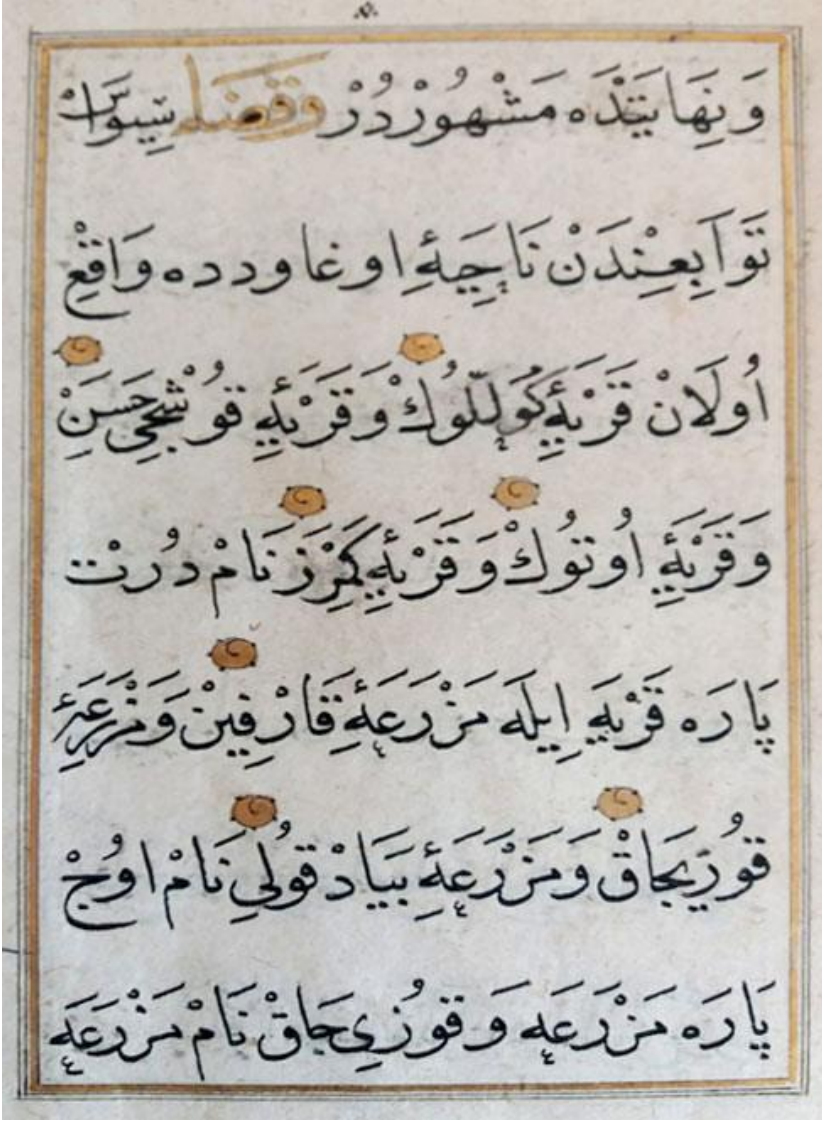 وَنِهَايَتِنْدَه مَشْهُورْدُرْ وقضاء سِيوَاسْ
تَوَابِعِنْدَنْ نَاحِيَهِٔ اوغاودده وَاقِعْ
اُولَانْ قَرْيَهِٔ كُوللُوكْ وَقَرْيَهِٔ قوُشْجِى حَسَنْ
وَقَرْيَهِٔ اُوتُوكْ وَقَرْيَهِٔ كَمْرَزْ نَامْ دُرتْ
پَارَه قَرْيَه اِيلَه مَزْرَعَهِٔ قَارْفِينْ وَمَزْرَعَهِٔ
قوُزيجَاقْ وَمَزْرَعَهِٔ بَيَادْ قوُلِي نَامْ اوُجْ
پَارَه مَزْرَعَه وَقوُزِىجَاقْ نَامْ مَزْرَعَه